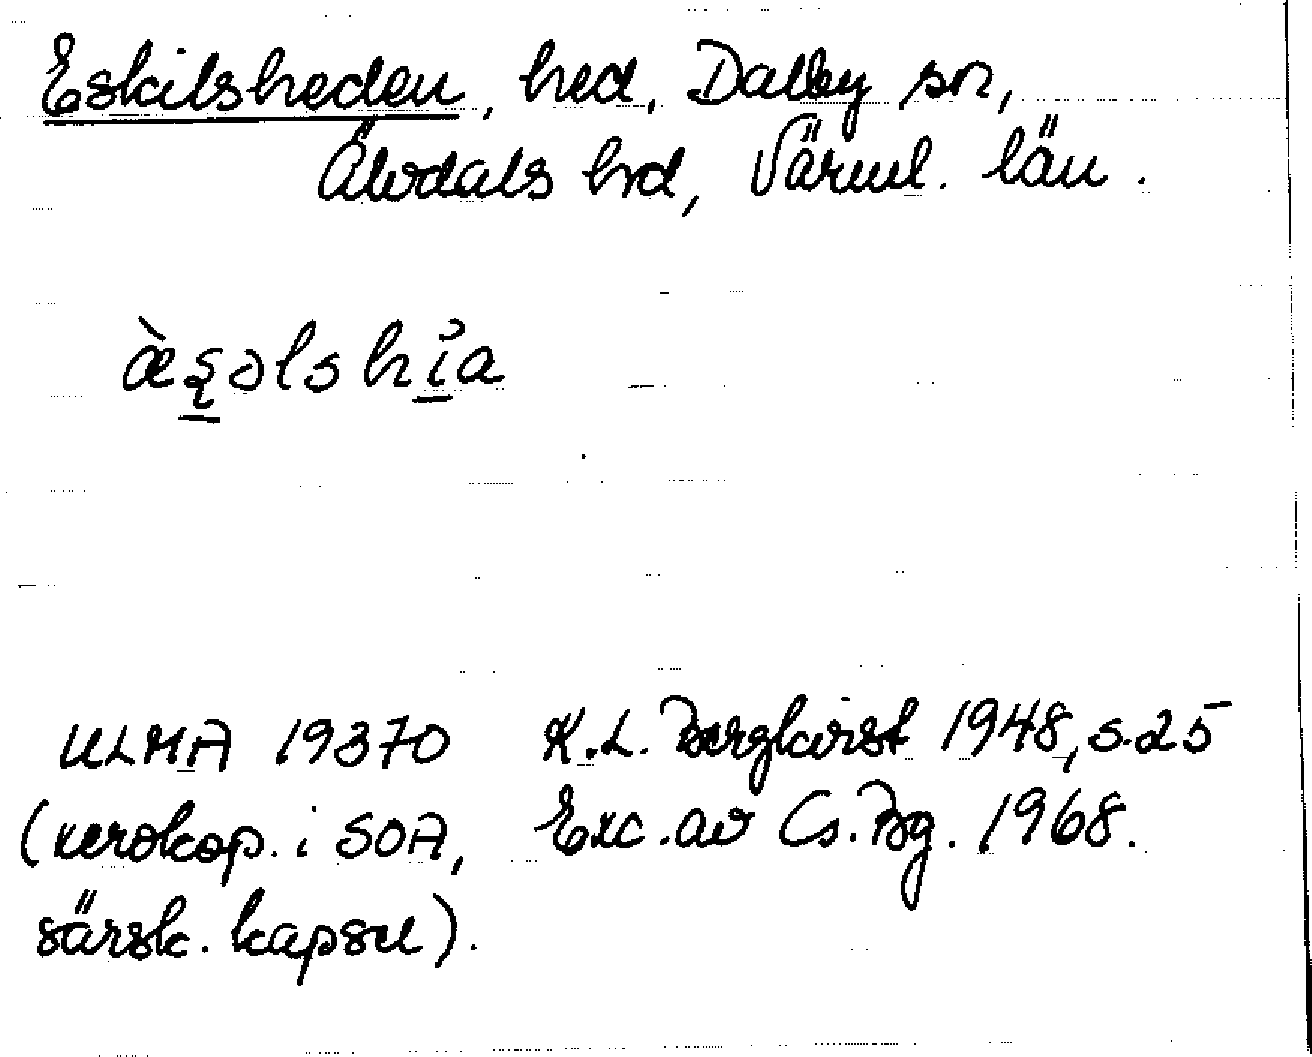 Eskilsheden, hed, Dalby sn,
Älvdals hd, Värml. län.
ULMA 19370 K.L. Bergkvist 1948, s. 25
(xerokop. i SOA, Exc. av Cs. Bg. 1968.
särsk. kapsel).